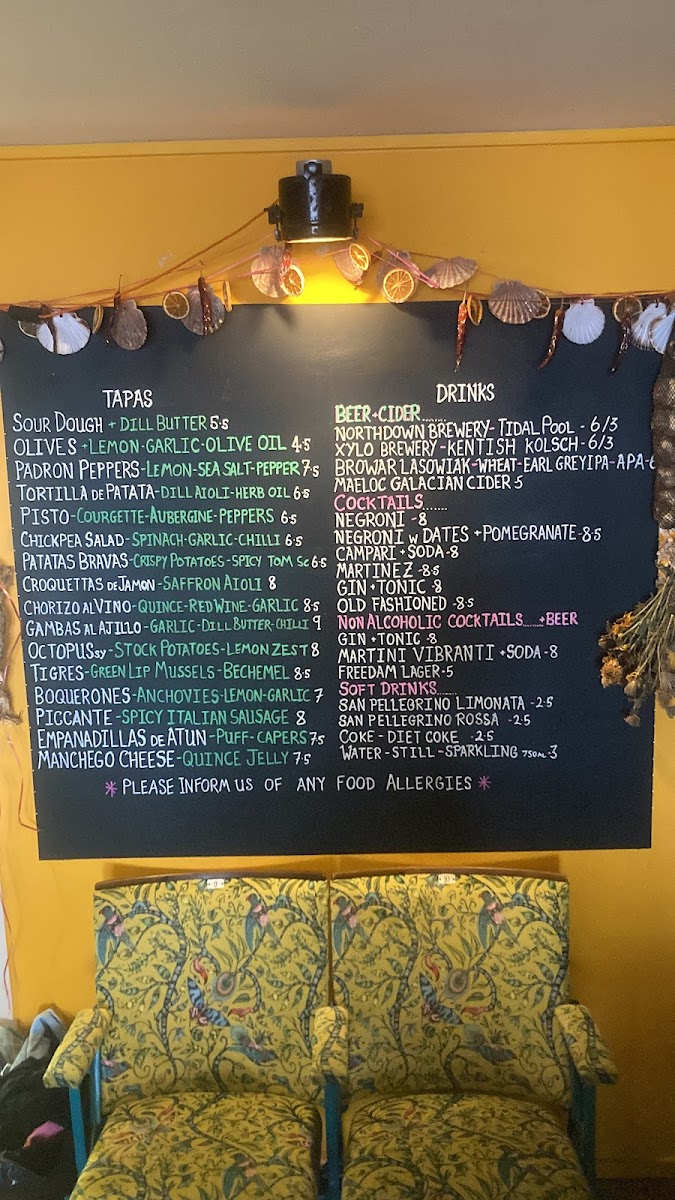 TAPAS
SOUR DOUGH + DILL BUTTER 5.5
OLIVES + LEMON-GARLIC-OLIVE OIL 4.5
PADRON PEPPERS-LEMON-SEA SALT-PEPPER 7.5
TORTILLA DE PATATA-DILL AIOLI-HERB OIL 6.5
PISTO-COURGETTE-AUBERGINE-PEPPERS 6.5
CHICKPEA SALAD-SPINACH-GARLIC-CHILLI 6.5
PATATAS BRAVAS-CRISPY POTATOES-SPICY TOM SC 6.5
CROQUETTAS DE JAMON-SAFFRON AIOLI 8
CHORIZO AL VINO-QUINCE-RED WINE-GARLIC 8.5
GAMBAS AL AJILLO-GARLIC-DILL BUTTER-CHILLI 9
OCTOPUS-STOCK POTATOES-LEMON ZEST 8
TIGRES-GREEN LIP MUSSELS-BECHEMEL 8.5
BOQUERONES-ANCHOVIES-LEMON-GARLIC 7
PICCANTE-SPICY ITALIAN SAUSAGE 8
EMPANADILLAS DE ATUN-PUFF-CAPERS 7.5
MANCHEGO CHEESE-QUINCE JELLY 7.5
DRINKS
BEER+CIDER........
NORTHDOWN BREWERY-TIDAL POOL - 6/3
XYLO BREWERY-KENTISH KOLSCH-6/3
BROWAR LASOWIAK-WHEAT-EARL GREY IPA-APA-6
MAELOC GALACIAN CIDER-5
COCKTAILS.......
NEGRONI -8
NEGRONI W DATES +POMEGRANATE-8.5
CAMPARI+SODA-8
MARTINEZ -8.5
GIN+TONIC -8
OLD FASHIONED -8.5
NON ALCOHOLIC COCKTAILS.....+BEER
GIN+TONIC-8
MARTINI VIBRANTI +SODA-8
FREEDAM LAGER-5
SOFT DRINKS.......
SAN PELLEGRINO LIMONATA -2.5
SAN PELLEGRINO ROSSA -2.5
COKE-DIET COKE -2.5
WATER-STILL-SPARKLING 750ML 3
* PLEASE INFORM US OF ANY FOOD ALLERGIES *